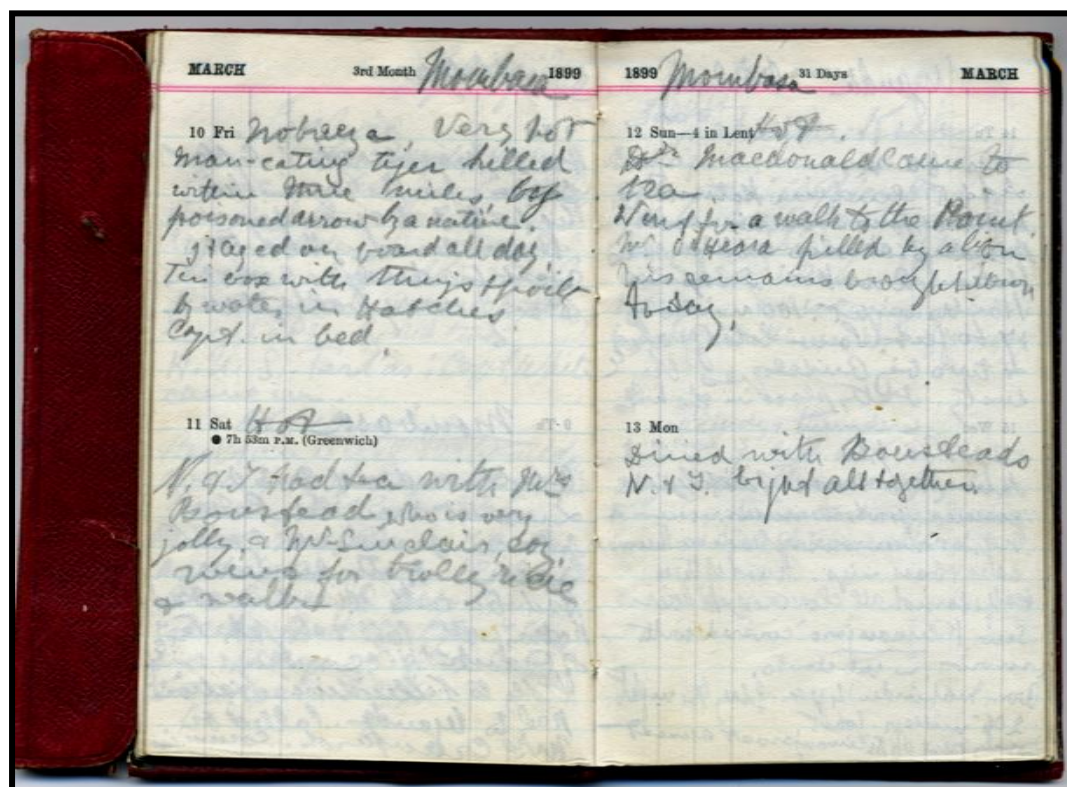 MARCH 3rd Month Mombasa 1899
10 Fri No breeze, Very hot
Man-eating tiger killed
within three miles by
poisoned arrow by a native.
Stayed on board all day
Tin box with things spoilt
by water in Hatches.
Capt. in bed.
11 Sat Hot
● 7h 53m P.M. (Greenwich)
N. & I had tea with Mrs
Boustead who is very
jolly, & Mr Sinclair,
went for trolly ride
& walked
1899 Mombasa 31 Days MARCH
12 Sun—4 in Lent Hot.
Dr. Macdonald came to
tea
Went for a walk to the Point.
Mr O'Hara killed by a lion
his remains brought down
to day.
13 Mon
Dined with Bousteads
N. & I. eight altogether.